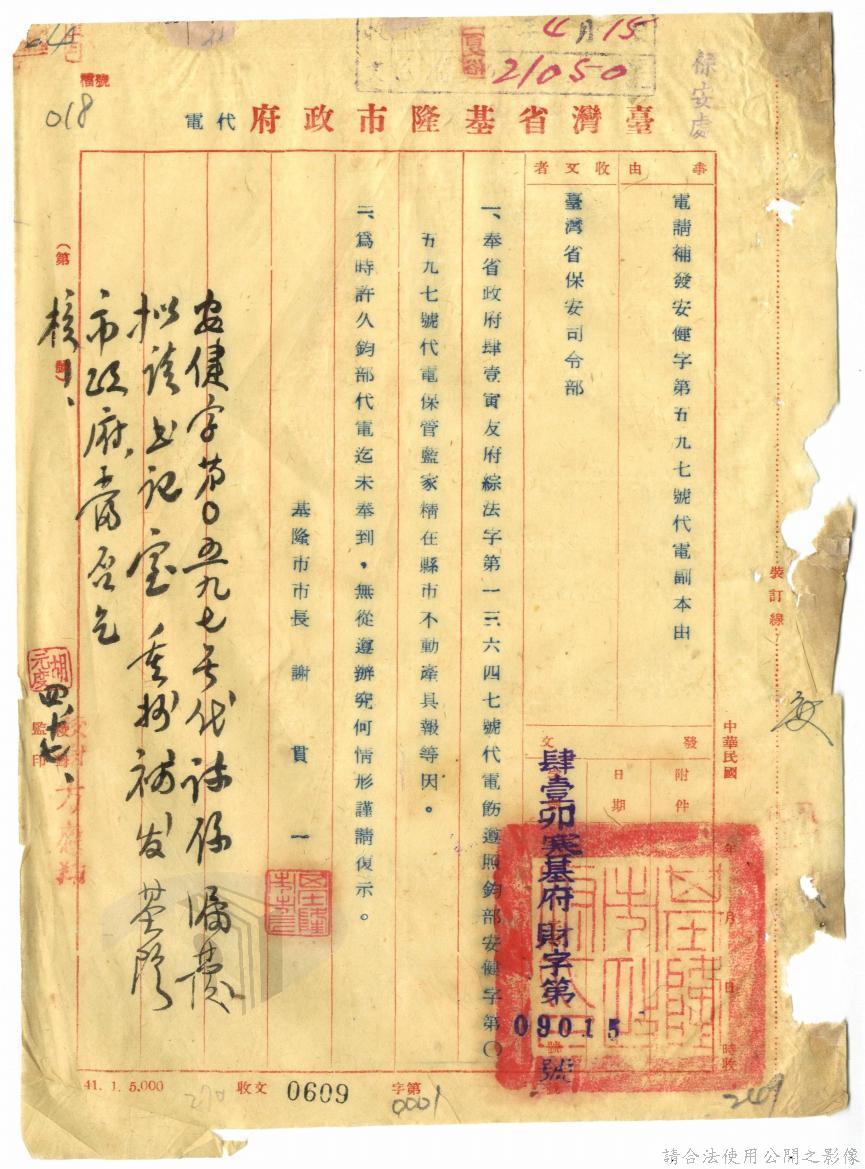 4月15
21050
保安處
檔號
018
臺灣省基隆市政府代電
事由
電請補發安健字第五九七號代電副本由
收文者
臺灣省保安司令部
發文
附件
日期
肆壹卯寒基府財字第
09015
號
一、奉省政府肆壹寅友府綜法字第一三六四七號代電飭遵照鈞部安健字第〇
五九七號代電保管藍家精在縣市不動產具報等因。
二、爲時許久鈞部代電迄未奉到，無從遵辦究何情形謹請復示。
基隆市市長 謝貫一
安健字第0五九七號代
拟請書記室
補发基隆
市政府當否乞
核
胡元度
四、十七、
監印
(第
號)
裝訂線
中華民國
年
月
日
時收
41. 1. 5,000
收文
0609
字第
0001
270
249
請合法使用公開之影像